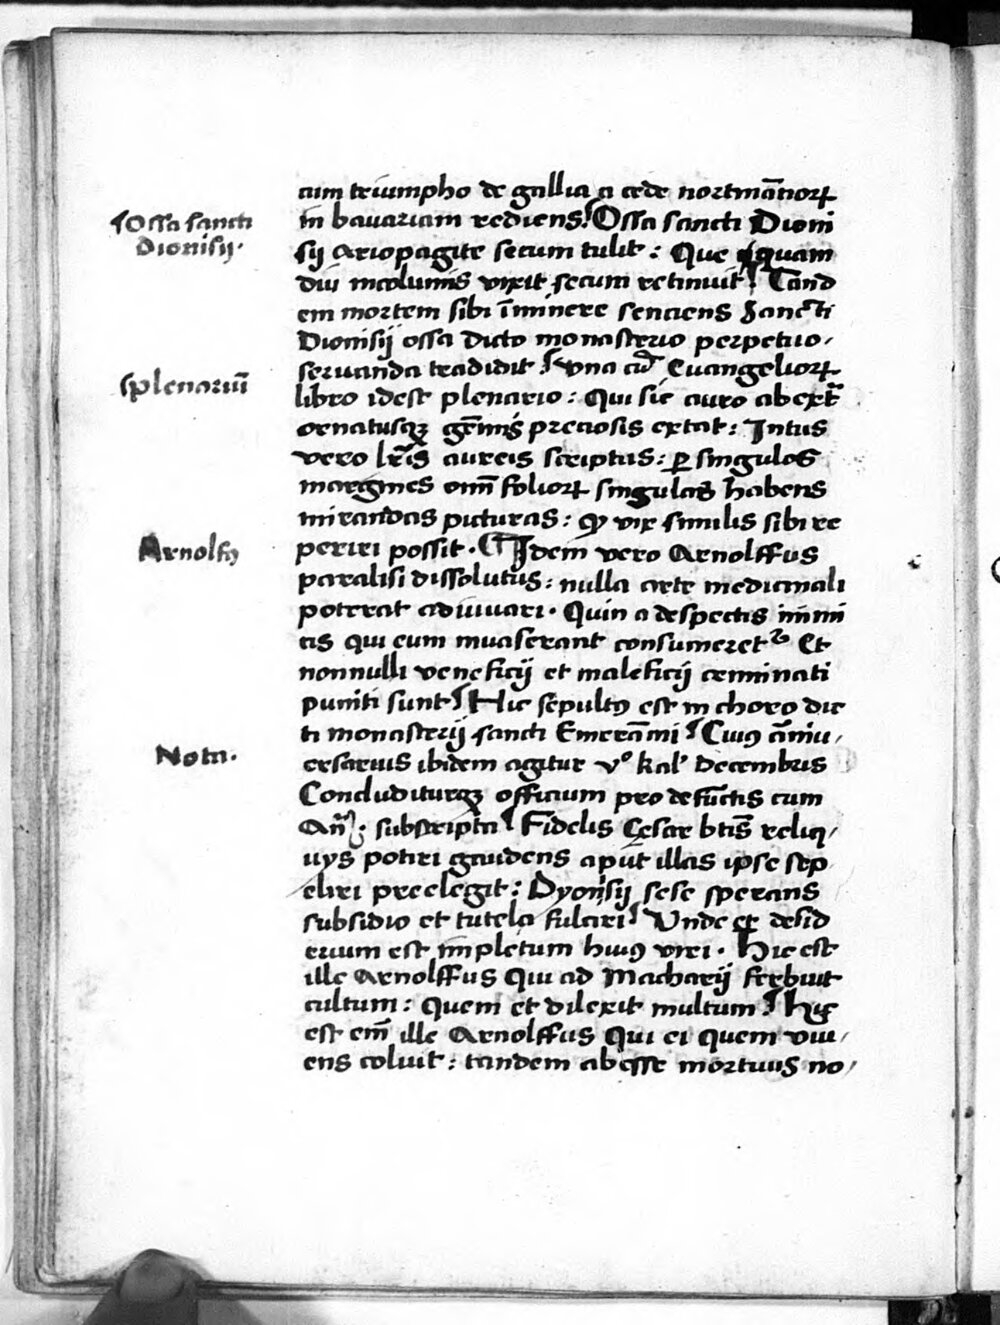 cum triumpho de gallia a cede nortmāniorꝝ
Ossa sancti
Dionisij.
in bauariam rediens! Ossa sancti Dioni
sij Ariopagite secum tulit: Que quam
diu incolumis vixit secum retinuit! Tand
em mortem sibi īminere senciens Sancti
Dionisij ossa dicto monasterio perpetuo,
plenariū
seruanda tradidit! vna cū Euangeliorꝝ
libro idest plenario: Qui sic auro ab extᵃ
ornatusqꝫ gēmis preciosis extat: Intus
vero lr̄is aureis scriptus: ꝑ singulos
margines oīm foliorꝝ singulas habens
mirandas picturas: ꝙ vix similis sibi re
Arnolfꝰ
periri possit. ¶ Idem vero Arnolffus
paralisi dissolutus: nulla arte medicinali
poterat adiuuari. Quin a despectis inimi
cis qui eum inuaserant consumeretᷣ Et
nonnulli veneficij et maleficij criminati
puniti sunt! Hic sepultꝰ est in choro dic
ti monasterij sancti Emerāmi! Cuiꝰ āniu,
Nota.
ersarius ibidem agitur vº kal' Decembris
Concluditurqꝫ officium pro defūctis cum
Añ. subscripta! Fidelis Cesar btīs reliq,
uys potiri gaudens aput illas ipse sep
eliri preelegit: Dyonisij sese sperans
subsidio et tutela fulciri! Vnde et desid
erium est impletum huiꝰ viri. Hic est
ille Arnolffus Qui ad Macharij ferbuit
cultum: Quem et dilexit multum! Hic
est em̄ ille Arnolffus Qui ei quem viu,
ens coluit: tandem abesse mortuus no,